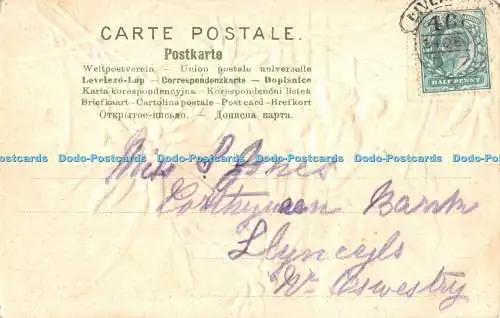 CARTE POSTALE.
Postkarte
Weltpostverein. – Union postale universelle
Levelező-Lap – Correspondenzkarte – Dopisnice
Karta korespondencyjna – Korespondenční lístek
Briefkaart – Cartolina postale – Post card – Brefkort
Открытое письмо. – Дописна карта.
HALF PENNY
Dodo-Postcards Dodo-Postcards Dodo-Postcards Dodo-Postcards Dodo-Postcards Dodo-Postcards
Miss P Jones
Bank
Nr Oswestry